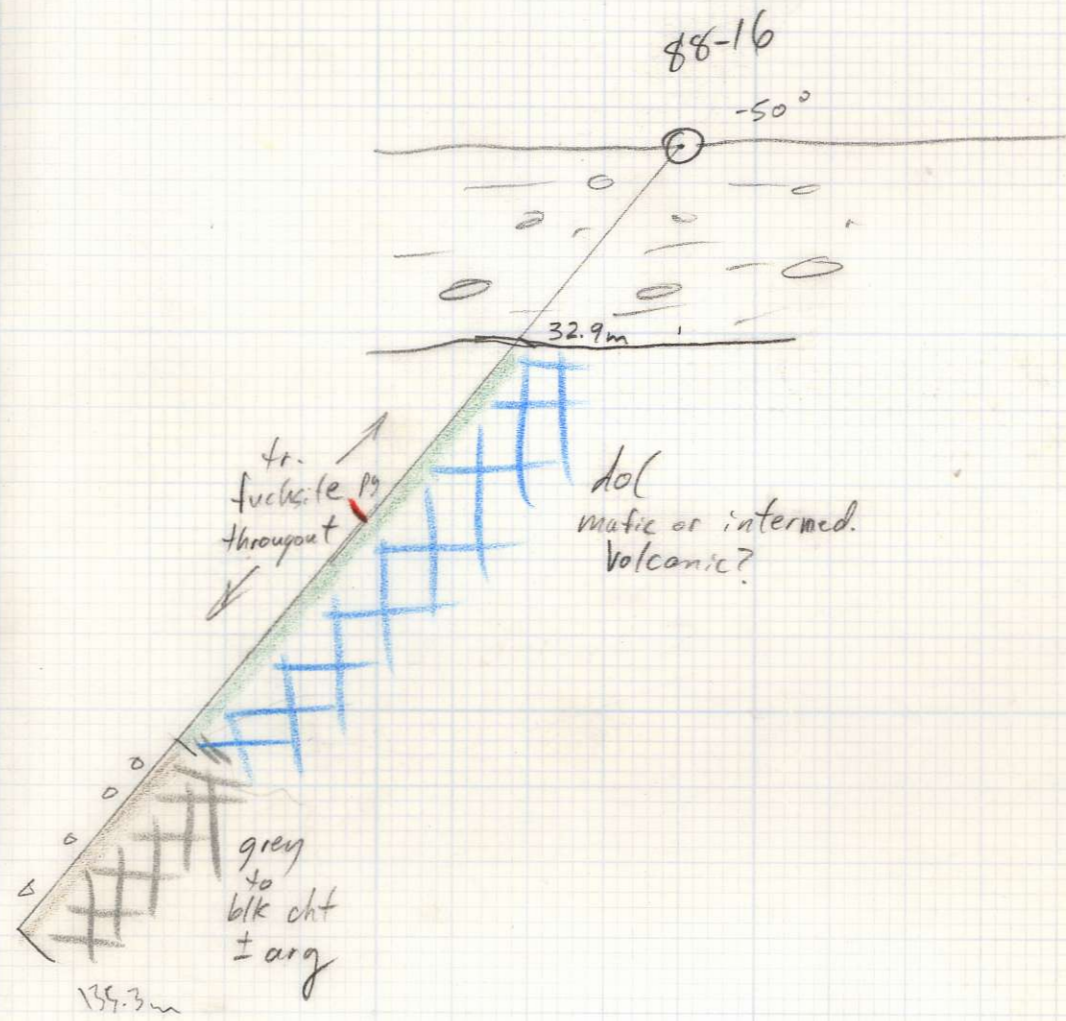 88-16
-50°
32.9m
tr.
fuchsite py
througout
dol
mafic or intermed.
Volcanic?
grey
to
blk cht
± arg